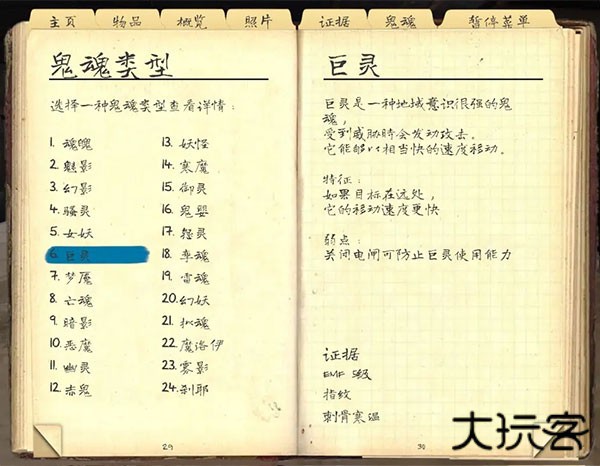 主页 物品 概览 照片 证据 鬼魂 暂停菜单
鬼魂类型
选择一种鬼魂类型查看详情：
1. 魂魄
2. 魅影
3. 幻影
4. 骚灵
5. 女妖
6. 巨灵
7. 梦魇
8. 亡魂
9. 暗影
10. 恶魔
11. 幽灵
12. 赤鬼
13. 妖怪
14. 寒魔
15. 御灵
16. 鬼婴
17. 怨灵
18. 孪魂
19. 雷魂
20. 幻妖
21. 拟魂
22. 魔洛伊
23. 雾影
24. 刹耶
29
巨灵
巨灵是一种地域意识很强的鬼
魂，
受到威胁时会发动攻击。
它能够以相当快的速度移动。
特征：
如果目标在远处，
它的移动速度更快
弱点：
关闭电闸可防止巨灵使用能力
证据
EMF 5级
指纹
刺骨寒温
30
大玩客